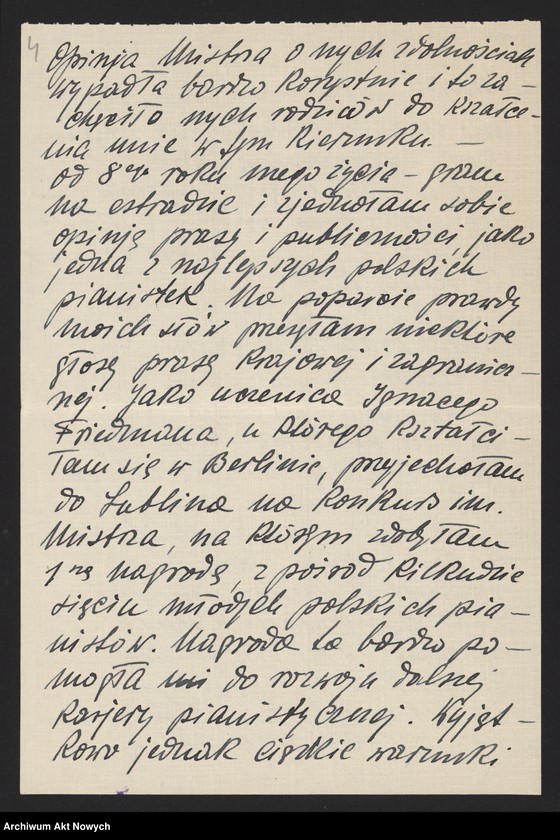 4
Opinja Mistrza o mych zdolnościach
wypadła bardzo korzystnie i to za-
chęciło mych rodziców do kształce-
nia mnie w tym kierunku. —
od 8go roku mego życia - gram
na estradzie i zjednałam sobie
opinję prasy i publiczności, jako
jedna z najlepszych polskich
pianistek. Na poparcie prawdy
moich słów przesyłam niektóre
głosy prasy krajowej i zagranicz-
nej. Jako uczenica Ignacego
Friedmana, u którego kształci-
łam się w Berlinie, przyjechałam
do Lublina na Konkurs im.
Mistrza, na którym zdobyłam
1szą nagrodę, z pośród kilkudzie
sięciu młodych polskich pia-
nistów. Nagroda ta bardzo po-
mogła mi do rozwoju dalszej
karjery pianistycznej. Wyjąt-
kowo jednak ciężkie warunki
Archiwum Akt Nowych